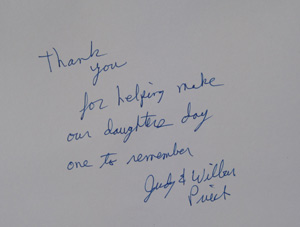 Thank
you
for helping make
our daughters day
one to remember
Judy & Wilbur
Priest